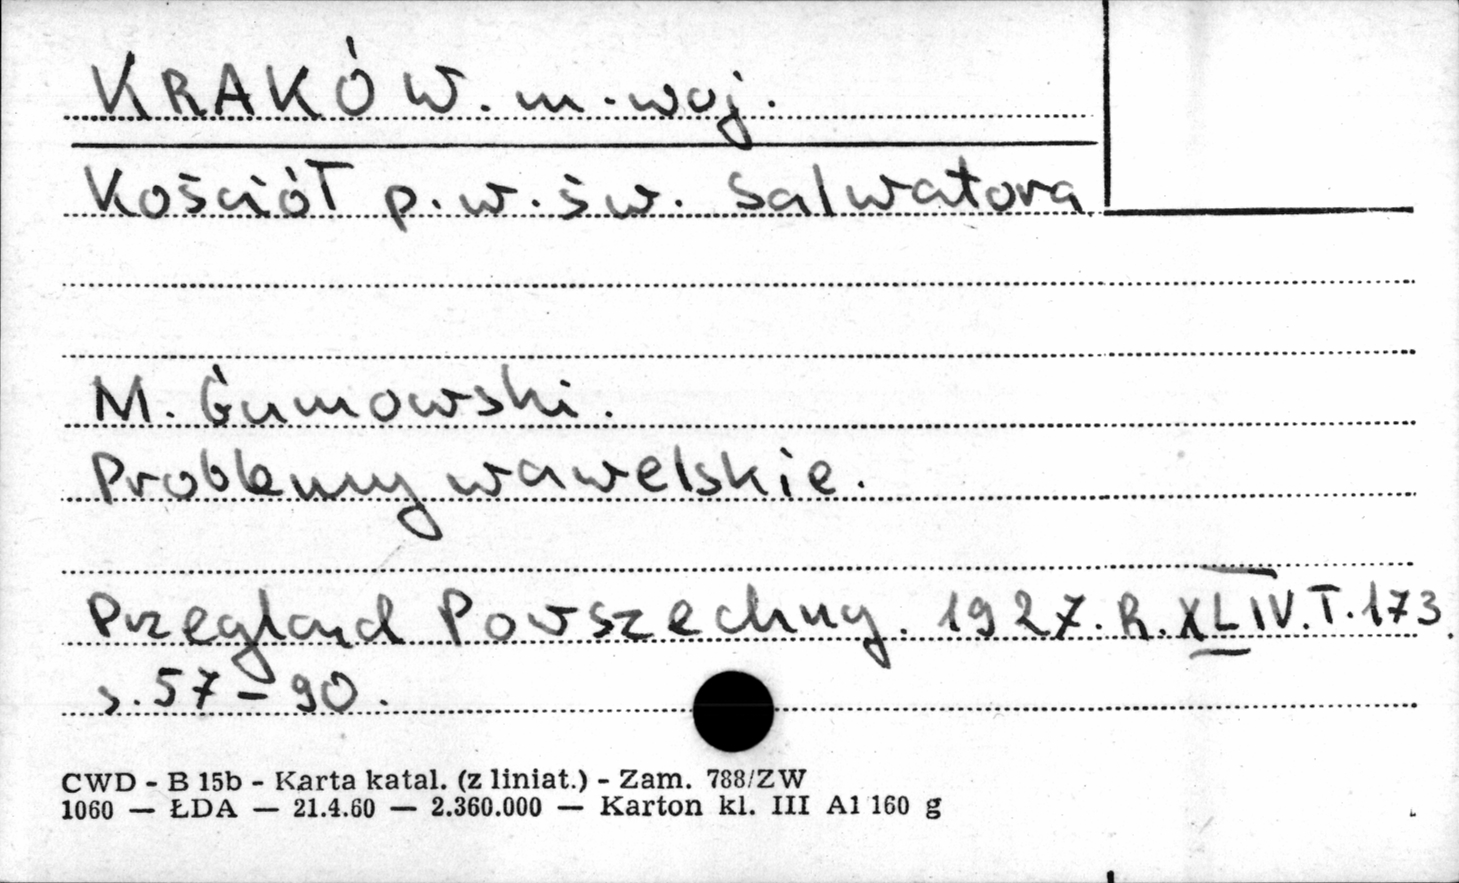 KRAKÓW. m. woj.
Kościół p.w. św. Salwatora
M. Gumowski.
Problemy wawelskie.
Przegląd Powszechny. 1927. R. XLIV. T. 173.
s. 57 - 90.
CWD - B 15b - Karta katal. (z liniat.) - Zam. 788/ZW
1060 — ŁDA — 21.4.60 — 2.360.000 — Karton kl. III A1 160 g